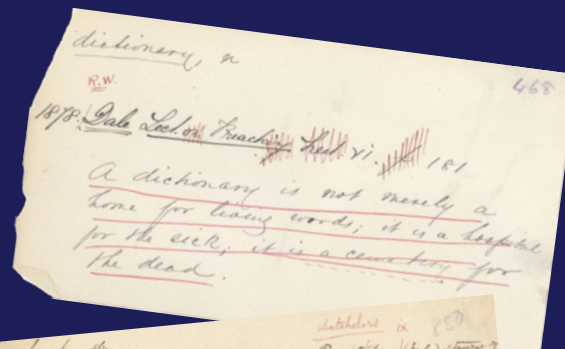 dictionary, n
R.W.
468
1878. Dale Lect. on Preaching Lect vi. 181
A dictionary is not merely a
home for living words; it is a hospital
for the sick; it is a cemetery for
the dead.
Batchelors ix 850